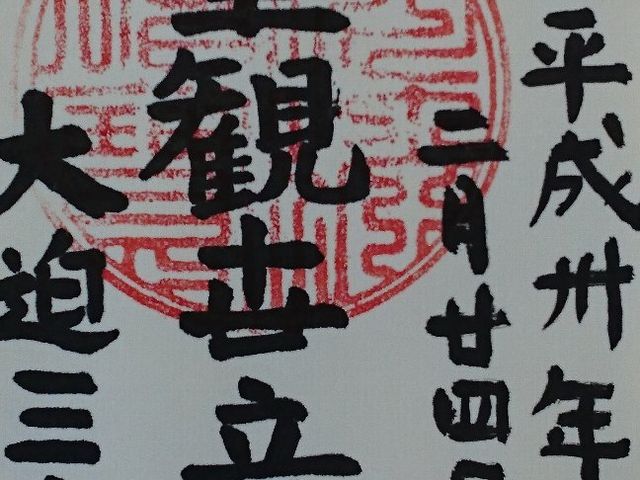 平成卅年
二月廿四日
観世音
大迫三